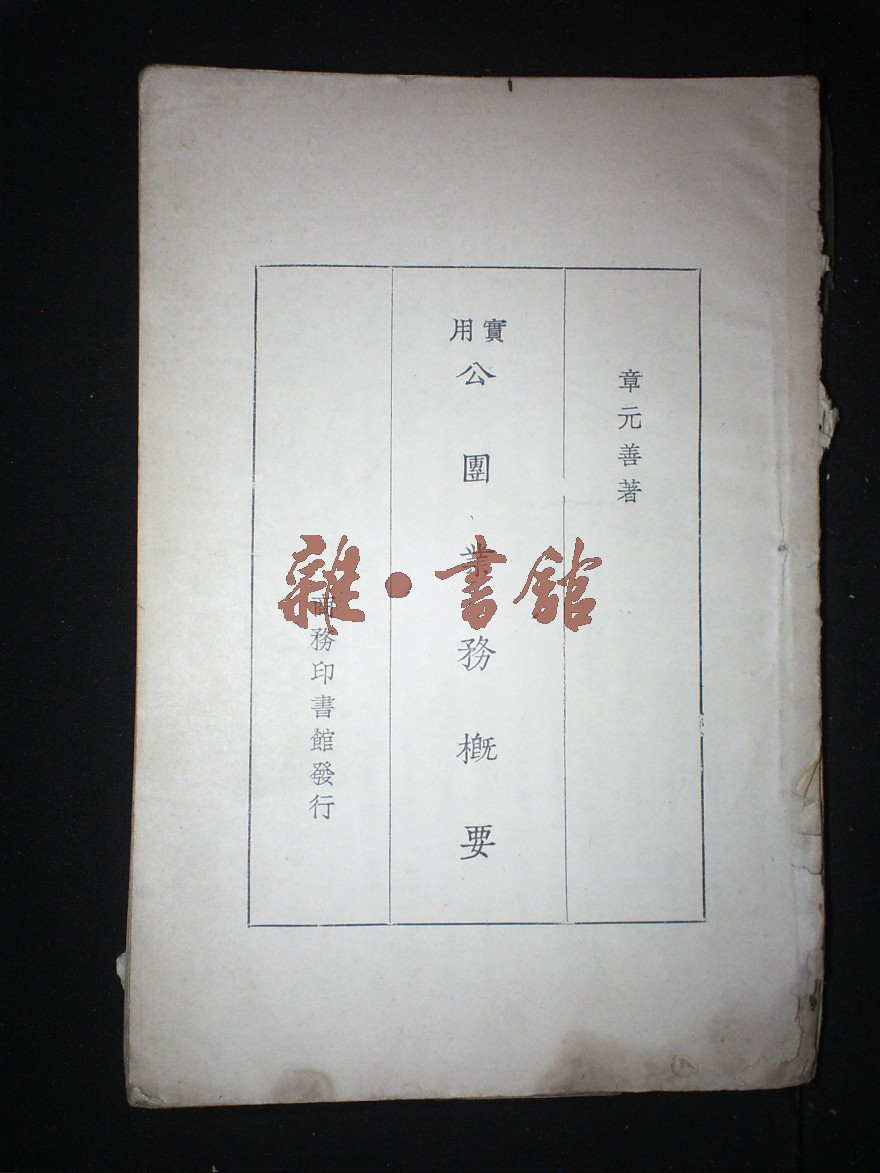 章元善著
實用
公團業務概要
商務印書館發行
雜·書館